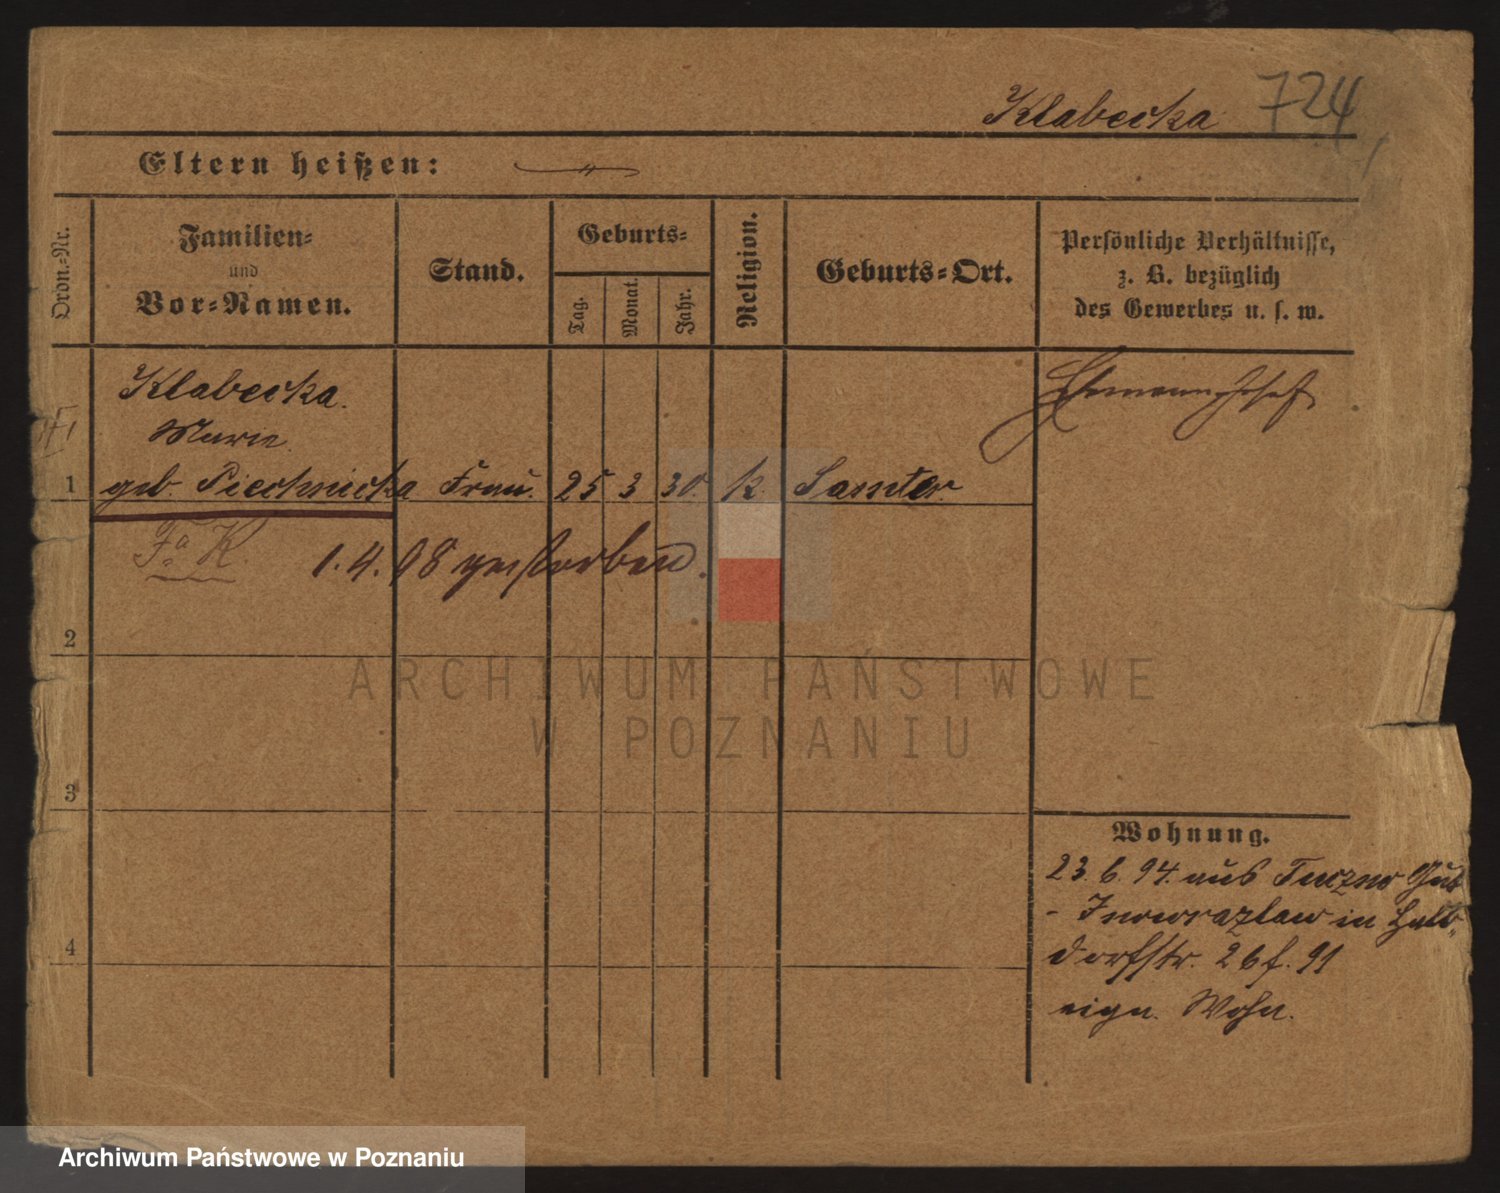 Klabecka 724
Eltern heißen: — " —
Ordn.=Nr.
Familien=
und
Vor=Namen.
Stand.
Geburts=
Tag.
Monat.
Jahr.
Religion.
Geburts=Ort.
Persönliche Verhältnisse,
z. B. bezüglich
des Gewerbes u. s. w.
Klabecka.
Marie
1 geb. Piechnicka Frau. 25 3 30. k. Samter.
Fa K. 1. 4. 08 gestorben.
2
3
4
Wohnung.
23. 6. 94. aus Tuczno Gut
- Inowrazlaw in Halb„
dorfstr. 26 f. 91
eign. Wohn.
ARCHIWUM PAŃSTWOWE
W POZNANIU
Archiwum Państwowe w Poznaniu